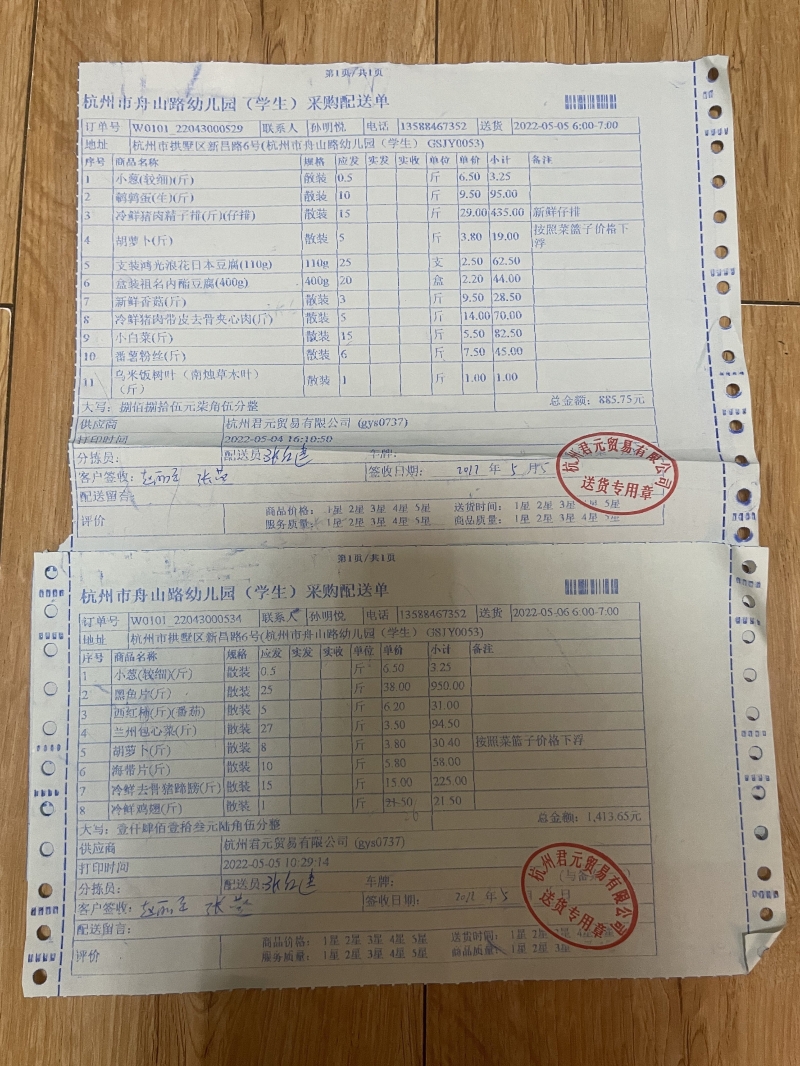 第1页/共1页
杭州市舟山路幼儿园（学生）采购配送单
订单号 W0101_22043000529 联系人 孙明悦 电话 13588467352 送货 2022-05-05 6:00-7:00
地址 杭州市拱墅区新昌路6号(杭州市舟山路幼儿园（学生） GSJY0053)
序号 商品名称 规格 应发 实发 实收 单位 单价 小计 备注
1 小葱(较细)(斤) 散装 0.5 斤 6.50 3.25
2 鹌鹑蛋(生)(斤) 散装 10 斤 9.50 95.00
3 冷鲜猪肉精子排(斤)(仔排) 散装 15 斤 29.00 435.00 新鲜仔排
4 胡萝卜(斤) 散装 5 斤 3.80 19.00 按照菜篮子价格下浮
5 支装鸿光浪花日本豆腐(110g) 110g 25 支 2.50 62.50
6 盒装祖名内酯豆腐(400g) 400g 20 盒 2.20 44.00
7 新鲜香菇(斤) 散装 3 斤 9.50 28.50
8 冷鲜猪肉带皮去骨夹心肉(斤) 散装 5 斤 14.00 70.00
9 小白菜(斤) 散装 15 斤 5.50 82.50
10 番薯粉丝(斤) 散装 6 斤 7.50 45.00
11 乌米饭树叶（南烛草木叶）（斤） 散装 1 斤 1.00 1.00
大写：捌佰捌拾伍元柒角伍分整 总金额：885.75元
供应商 杭州君元贸易有限公司 (gys0737)
打印时间 2022-05-04 16:10:50
分拣员： 配送员： 张红建 车牌：
客户签收： 签收日期： 年 5 月 5
配送留言：
评价 商品价格： 1星 2星 3星 4星 5星 送货时间： 1星 2星 3星 4星 5星
服务质量： 1星 2星 3星 4星 5星 商品质量： 1星 2星 3星
杭州君元贸易有限公司
送货专用章
第1页/共1页
杭州市舟山路幼儿园（学生）采购配送单
订单号 W0101_22043000534 联系人 孙明悦 电话 13588467352 送货 2022-05-06 6:00-7:00
地址 杭州市拱墅区新昌路6号(杭州市舟山路幼儿园（学生） GSJY0053)
序号 商品名称 规格 应发 实发 实收 单位 单价 小计 备注
1 小葱(较细)(斤) 散装 0.5 斤 6.50 3.25
2 黑鱼片(斤) 散装 25 斤 38.00 950.00
3 西红柿(斤)(番茄) 散装 5 斤 6.20 31.00
4 兰州包心菜(斤) 散装 27 斤 3.50 94.50
5 胡萝卜(斤) 散装 8 斤 3.80 30.40 按照菜篮子价格下浮
6 海带片(斤) 散装 10 斤 5.80 58.00
7 冷鲜去骨猪蹄膀(斤) 散装 15 斤 15.00 225.00
8 冷鲜鸡翅(斤) 散装 1 斤 21.50 21.50
大写：壹仟肆佰壹拾叁元陆角伍分整 总金额：1,413.65元
供应商 杭州君元贸易有限公司 (gys0737)
打印时间 2022-05-05 10:29:14
分拣员： 配送员： 张红建 车牌：
客户签收： 签收日期： 年 5 日
配送留言：
评价 商品价格： 1星 2星 3星 4星 5星 送货时间： 1星 2星 4星 5星
服务质量： 1星 2星 3星 4星 5星 商品质量： 1星 2星 3星
杭州君元贸易有限公司
送货专用章